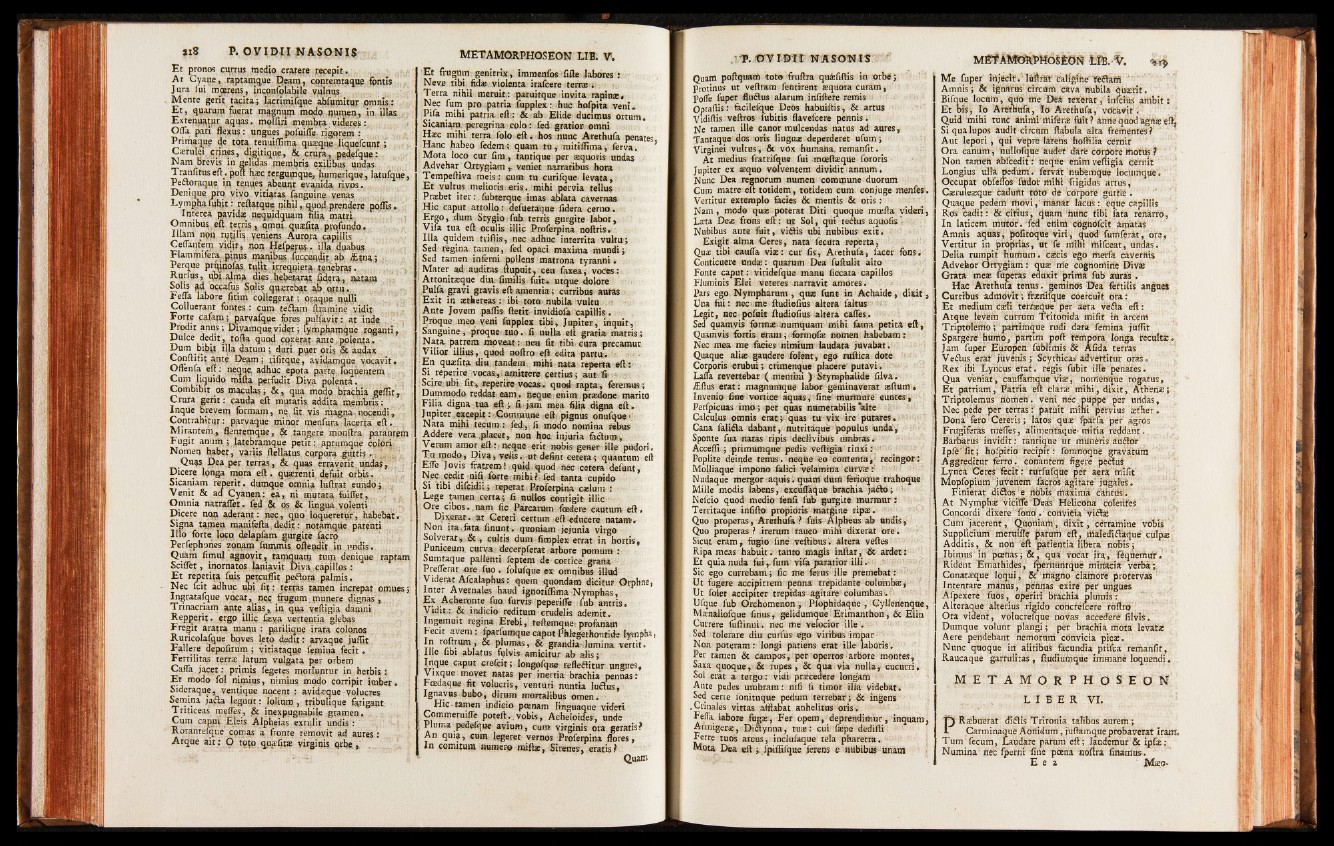 218 P. OVIDII NASONIS
Et pronos currus medio cratere recepit.
At Cyane, raptamque Deam, contemtaque fontis
Jura sui mœrens, inconsolabile vulnus
Mente gerit tacita; lacrimisque absumitur omnis:
Et, quarum fuerat magnum modo numen, in illas
Extenuatur aquas. molliri membra videres:
Ossa pati flexus: ungues posuisse rigorem:
Primaque de tota tenuissima quæque liquescunt;
Cærulei crines, digitique, & crura, pedesque:
Nam brevis in gelidas membris exilibus undas
Transitus est. post hæc tergumque, humerique, latusque,
Pectoraque in tenues abeunt evanida rivos.
Denique pro vivo vitiatas sanguine venas
Lympha subit: restatque nihil, quod prendere possis.
Interea pavidæ nequidquam filia matri
Omnibus est terris, omni quæsita profundo.
Illam non rutilis veniens Aurora capillis
Cessantem vidit, non Hesperus. illa duabus
Flammifera pinus manibus succendit ab Ætna;
Perque pruinosas tulit irrequieta tenebras.
Rursus, ubi alma dies hebetarat sidera, natam
Solis ad occasus Solis quærebat ab ortu.
Fessa labore sitim collegerat: oraque nulli
Colluerant fontes: cum tectam stramine vidit
Forte casam; parvasque fores pulsavit: at inde
Prodit anus; Divamque videt: lymphamque roganti,
Dulce dedit, tosta quod coxerat ante polenta.
Dum bibit illa datum; duri puer oris & audax
Constitit ante Deam; risitque, avidamque vocavit.
Offensa est: neque adhuc epota parte loquentem
Cum liquido mista perfudit Diva polenta.
Combibit os maculas; &, qua modo brachia gessit,
Crura gerit: cauda est mutatis addita membris:
Inque brevem formam, ne sit vis magna nocendi,
Contrahitur: parvaque minor mensura lacerta est.
Mirantem, flentemque, & tangere monstra parantem
Fugit anum; latebramque petit: aptumque colori
Nomen habet, variis stellatus corpora guttis.
Quas Dea per terras, & quas erraverit undas,
Dicere longa mora est. quærenti defuit orbis.
Sicaniam reperit. dumque omnia lustrat eundo;
Venit & ad Cyanen: ea, ni mutata fuisset,
Omnia narrasset. sed & os & lingua volenti
Dicere non aderant: nec, quo loqueretur, habebat.
Signa tamen manifesta dedit: notamque parenti
Illo forte loco delapsam gurgite sacro
Persephones zonam summis ostendit in undis.
Quam simul agnovit, tamquam tum denique raptam
Scisset, inornatos laniavit Diva capillos:
Et repetita suis percussit pectora palmis.
Nec scit adhuc ubi sit: terras tamen increpat omnes;
Ingratasque vocat, nec frugum munere dignas,
Trinacriam ante alias, in qua vestigia damni
Repperit. ergo illic sæva vertentia glebas
Fregit aratra manu: parilique irata colonos
Ruricolasque boves leto dedit: arvaque jussit
Fallere depositum; vitiataque semina fecit.
Fertilitas terræ latum vulgata per orbem
Cassa jacet: primis segetes moriuntur in herbis:
Et modo sol nimius, nimius modo corripit imber.
Sideraque, ventique nocent: avidæque volucres
Semina jacta legunt: lolium, tribulique fatigant
Triticeas messes, & inexpugnabile gramen.
Cum caput Eleis Alpheias extulit undis:
Rorantesque comas a fronte removit ad aures:
Atque ait: O toto quæsitæ virginis orbe,
METAMORPHOSEON LIB. V.
Et frugum genitrix, immensos siste labores:
Neve tibi fidæ violenta irascere terræ.
Terra nihil meruit: patuitque invita rapinæ.
Nec sum pro patria supplex: huc hospita veni.
Pisa mihi patria est: & ab Elide ducimus ortum.
Sicaniam peregrina colo: sed gratior omni
Hæc mihi terra solo est. hos nunc Arethusa penates,
Hanc habeo sedem: quam tu, mitissima, serva.
Mota loco cur sim, tantique per æquoris undas
Advehar Ortygiam, veniet narratibus hora
Tempestiva meis: cum tu curisque levata,
Et vultus melioris eris. mihi pervia tellus
Præbet iter: subterque imas ablata cavernas
Hic caput attollo: desuetaque sidera cerno.
Ergo, dum Stygio sub terris gurgite labor,
Visa tua est oculis illic Proserpina nostris.
Illa quidem tristis, nec adhuc interrita vultu;
Sed regina tamen, sed opaci maxima mundi;
Sed tamen inferni pollens matrona tyranni.
Mater ad auditas stupuit, ceu saxea, voces:
Attonitæque diu similis fuit. utque dolore
Pulsa gravi gravis est amentia: curribus auras
Exit in æthereas: ibi toto nubila vultu
Ante Jovem passis stetit invidiosa capillis.
Proque meo veni supplex tibi, Jupiter, inquit,
Sanguine, proque tuo. si nulla est gratia matris;
Nata patrem moveat: neu sit tibi cura precamur
Vilior illius, quod nostro est edita partu.
En quæsita diu tandem mihi nata reperta est:
Si reperire vocas, amittere certius; aut si
Scire ubi sit, reperire vocas. quod rapta, feremus;
Dummodo reddat eam. neque enim prædone marito
Filia digna tua est, si jam mea filia digna est.
Jupiter excepit: Commune est pignus onusque
Nata mihi tecum: sed, si modo nomina rebus
Addere vera placet, non hoc injuria factum,
Verum amor est: neque erit nobis gener ille pudori.
Tu modo, Diva, velis. ut desint cetera; quantum est
Esse Jovis fratrem! quid quod nec cetera desunt,
Nec cedit nisi sorte mihi? sed tanta cupido
Si tibi discidii; repetat Proserpina cælum:
Lege tamen certa; si nullos contigit illic
Ore cibos. nam sic Parcarum fœdere cautum est.
Dixerat. at Cereri certum est educere natam.
Non ita fata sinunt. quoniam jejunia virgo
Solverat, &, cultis dum simplex errat in hortis,
Puniceum curva decerpserat arbore pomum:
Sumtaque pallenti septem de cortice grana
Presserat ore suo. solusque ex omnibus illud
Viderat Ascalaphus: quem quondam dicitur Orphne,
Inter Avernales haud ignotissima Nymphas,
Ex Acheronte suo furvis peperisse sub antris.
Vidit: & indicio reditum crudelis ademit.
Ingemuit regina Erebi, testemque profanam
Fecit avem: sparsumque caput Phlegethontide lympha,
In rostrum, & plumas, & grandia lumina vertit.
Ille sibi ablatus fulvis amicitur ab alis;
Inque caput crescit; longosque reflectitur ungues,
Vixque movet natas per inertia brachia pennas:
Fœdaque fit volucris, venturi nuntia luctus,
Ignavus bubo, dirum mortalibus omen.
Hic tamen indicio pœnam linguaque videri
Commeruisse potest. vobis, Acheloides, unde
Pluma pedesque avium, cum virginis ora geratis?
An quia, cum legeret vernos Proserpina flores,
In comitum numero mistæ, Sirenes, eratis?
Quam
P. OVIDII NASONIS
Quam postquam toto frustra quæsistis in orbe;
Protinus ut vestram sentirent æquora curam,
Posse super fluctus alarum insistere remis
Optastis: facilesque Deos habuistis, & artus
Vidistis vestros subitis flavescere pennis.
Ne tamen ille canor mulcendas natus ad aures,
Tantaque dos oris linguæ deperderet usum;
Virginei vultus, & vox humana remansit.
At medius fratrisque sui mœstæque sororis
Jupiter ex æquo volventem dividit annum.
Nunc Dea regnorum numen commune duorum
Cum matre est totidem, totidem cum conjuge menses.
Vertitur extemplo facies & mentis & oris:
Nam, modo quæ poterat Diti quoque mœsta videri,
Læta Deæ frons est: ut Sol, qui tectus aquosis
Nubibus ante fuit, victis ubi nubibus exit.
Exigit alma Ceres, nata secura reperta,
Quæ tibi caussa viæ: cur sis, Arethusa, sacer fons.
Conticuere undæ: quarum Dea sustulit alto
Fonte caput: viridesque manu siccata capillos
Fluminis Elei veteres narravit amores.
Pars ego Nympharum, quæ sunt in Achaide, dixit,
Una fui: nec me studiosius altera saltus
Legit, nec posuit studiosius altera casses.
Sed quamvis formæ numquam mihi fama petita est,
Quamvis fortis eram; formosæ nomen habebam:
Nec mea me facies nimium laudata juvabat.
Quaque aliæ gaudere solent, ego rustica dote
Corporis erubui; crimenque placere putavi.
Lassa revertebar (memini) Stymphalide silva.
Æstus erat: magnumque labor geminaverat æstum.
Invenio sine vortice aquas, sine murmure euntes,
Perspicuas imo; per quas numerabilis alte
Calculus omnis erat; quas tu vix ire putares.
Cana salicta dabant, nutritaque populus unda,
Sponte sua natas ripis declivibus umbras.
Accessi; primumque pedis vestigia tinxi:
Poplite deinde tenus. neque eo contenta, recingor:
Molliaque impono salici velamina curvæ:
Nudaque mergor aquis. quam dum ferioque trahoque
Mille modis labens, excussaque brachia jacto;
Nescio quod medio sensi sub gurgite murmur:
Territaque insisto propioris margine ripæ.
Quo properas, Arethusa? suis Alpheus ab undis,
Quo properas? iterum rauco mihi dixerat ore.
Sicut eram, fugio sine vestibus. altera vestes
Ripa meas habuit. tanto magis instat, & ardet:
Et quia nuda fui, sum visa paratior illi.
Sic ego currebam; sic me ferus ille premebat:
Ut fugere accipitrem penna trepidante columbæ,
Ut solet accipiter trepidas agitare columbas.
Usque sub Orchomenon, Psophidaque, Cyllenenque,
Mænaliosque sinus, gelidumque Erimanthon, & Elin
Currere sustinui. nec me velocior ille.
Sed tolerare diu cursus ego viribus impar
Non poteram: longi patiens erat ille laboris.
Per tamen & campos, per opertos arbore montes,
Saxa quoque, & rupes, & qua via nulla, cucurri.
Sol erat a tergo: vidi præcedere longam
Ante pedes umbram: nisi si timor illa videbat.
Sed certe sonituque pedum terrebar; & ingens
Crinales vittas afflabat anhelitus oris.
Fessa labore fugæ, Fer opem, deprendimur, inquam,
Armigeræ, Dictynna, tuæ: cui sæpe dedisti
Ferre tuos arcus, inclusaque tela pharetra.
Mota Dea est; spissisque ferens e nubibus unam
METAMORPHOSEON LIB. V. 219
Me super injecit. lustrat caligine tectam
Amnis; & ignarus circum cava nubila quærit.
Bisque locum, quo me Dea texerat, inscius ambit:
Et bis, Io Arethusa, Io Arethusa, vocavit.
Quid mihi tunc animi miseræ fuit? anne quod agnæ est,
Si qua lupos audit circum stabula alta frementes?
Aut lepori, qui vepre latens hostilia cernit
Ora canum, nullosque audet dare corpore motus?
Non tamen abscedit: neque enim vestigia cernit
Longius ulla pedum. servat nubemque locumque.
Occupat obsessos sudor mihi frigidus artus,
Cæruleæque cadunt toto de corpore guttæ.
Quaque pedem movi, manat lacus: eque capillis
Ros cadit: & citius, quam nunc tibi fata renarro,
In laticem mutor. sed enim cognoscit amatas
Amnis aquas, positoque viri, quod sumserat, ore,
Vertitur in proprias, ut se mihi misceat, undas.
Delia rumpit humum. cæcis ego mersa cavernis
Advehor Ortygiam: quæ me cognomine Divæ
Grata meæ superas eduxit prima sub auras.
Hac Arethusa tenus. geminos Dea fertilis angues
Curribus admovit: frænisque coercuit ora:
Et medium cæli terræque per aera vecta est:
Atque levem currum Tritonida misit in arcem
Triptolemo; partimque rudi data semina jussit
Spargere humo, partim post tempora longa recultæ.
Jam super Europen sublimis & Asida terras
Vectus erat juvenis; Scythicas advertitur oras.
Rex ibi Lyncus erat. regis subit ille penates.
Qua veniat, caussamque viæ, nomenque rogatus,
Et patriam, Patria est claræ mihi, dixit, Athenæ;
Triptolemus nomen. veni nec puppe per undas,
Nec pede per terras: patuit mihi pervius æther.
Dona fero Cereris; latos quæ sparsa per agros
Frugiferas messes, alimentaque mitia reddant.
Barbarus invidit: tantique ut muneris auctor
Ipse sit; hospitio recipit: somnoque gravatum
Aggreditur ferro. conantem figere pectus
Lynca Ceres fecit: rursusque per aera misit
Mopsopium juvenem sacros agitare jugales.
Finierat dictos e nobis maxima cantus.
At Nymphæ vicisse Deas Helicona colentes
Concordi dixere sono. convicia victæ
Cum jacerent, Quoniam, dixit, certamine vobis
Supplicium meruisse parum est, maledictaque culpæ
Additis, & non est patientia libera nobis;
Ibimus in pœnas; &, qua vocar ira, sequemur.
Rident Emathides, spernuntque minacia verba;
Conatæque loqui, & magno clamore protervas
Intentare manus, pennas exire per ungues
Aspexere suos, operiri brachia plumis:
Alteraque alterius rigido concrescere rostro
Ora vident, volucresque novas accedere silvis.
Dumque volunt plangi; per brachia mota levatæ
Aere pendebant nemorum convicia picæ.
Nunc quoque in alitibus facundia prisca remansit,
Raucaque garrulitas, studiumque immane loquendi.
METAMORPHOSEON
LIBER VI.
PRæbuerat dictis Tritonia talibus aurem;
Carminaque Aonidum, justamque probaverat iram.
Tum secum, Laudare parum est; laudemur & ipsæ:
Numina nec sperni sine pœna nostra sinamus.
E e 2 Mæo-